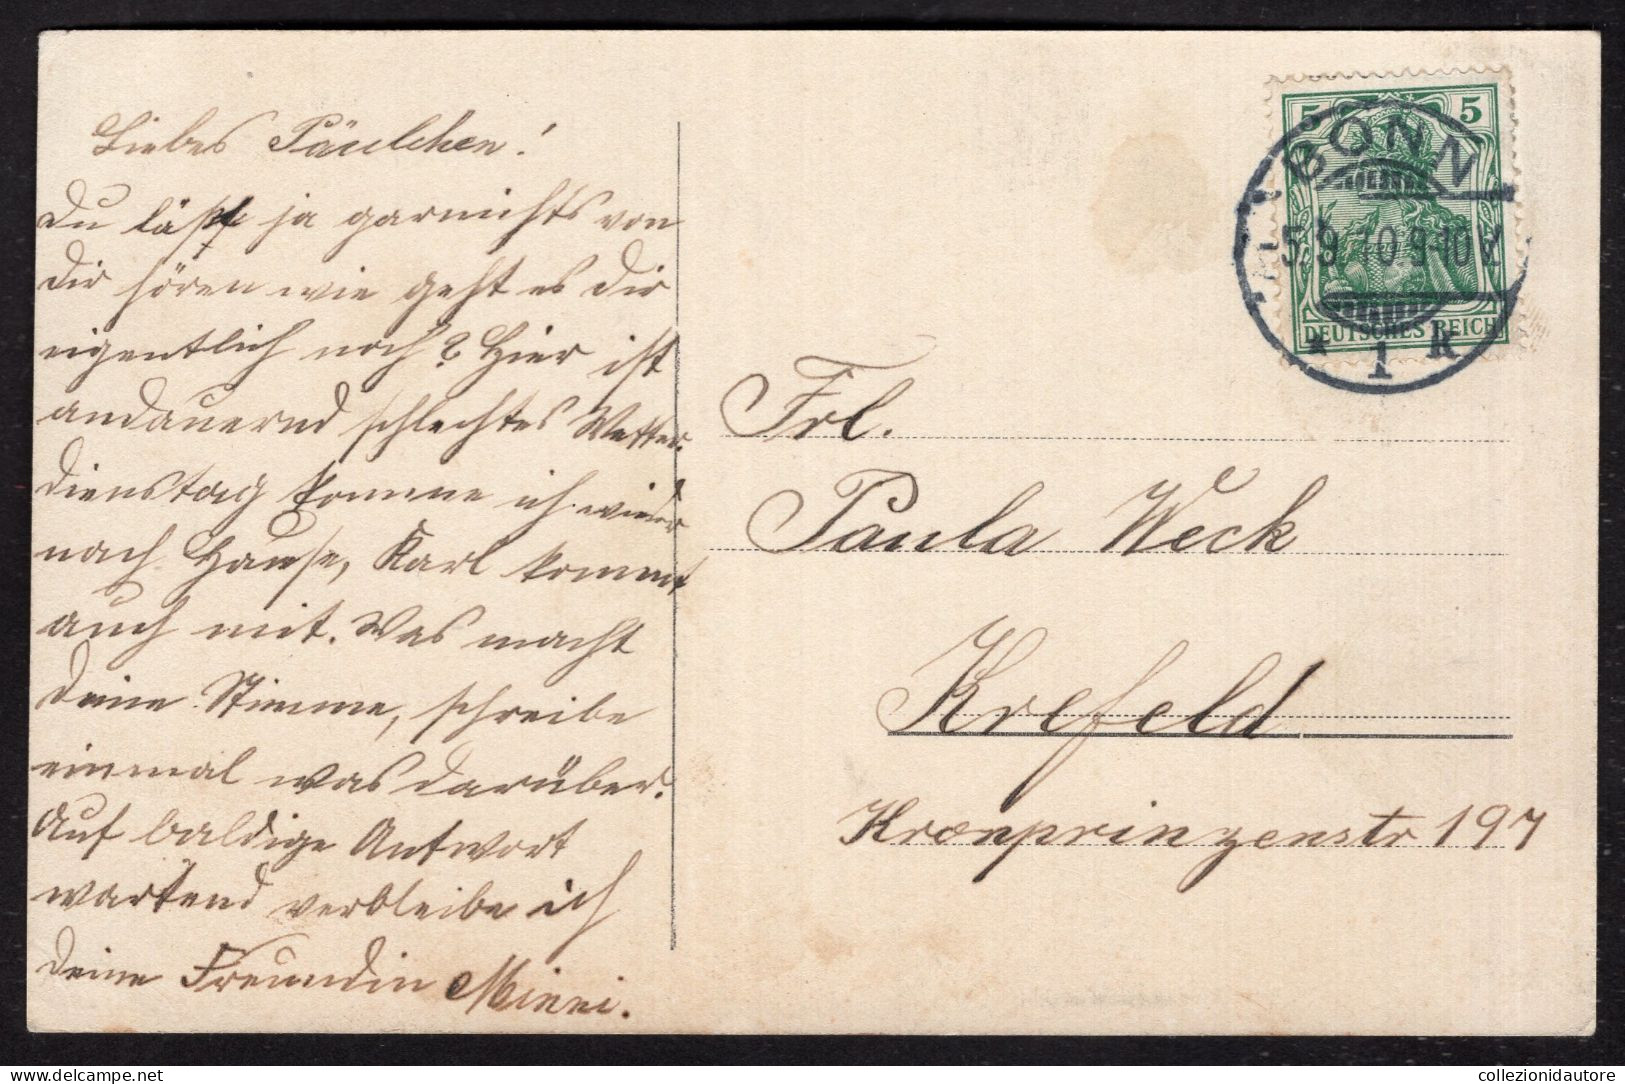 Liebes Päulchen!
Du läßt ja garnichts von
Dir hören wie geht es Dir
eigentlich noch? Hier ist
andauernd schlechtes Wetter.
Dienstag komme ich wieder
nach Hause, Karl kommt
auch mit. Was macht
Deine Stimme, schreibe
einmal was darüber.
Auf baldige Antwort
wartend verbleibe ich
Deine Freundin Minni.
5 5
BONN
5.9.10.9-10V
* 1 k
DEUTSCHES REICH
Frl.
Paula Weck
Krefeld
Kronprinzenstr 197
delcampe.net
collezionidautore